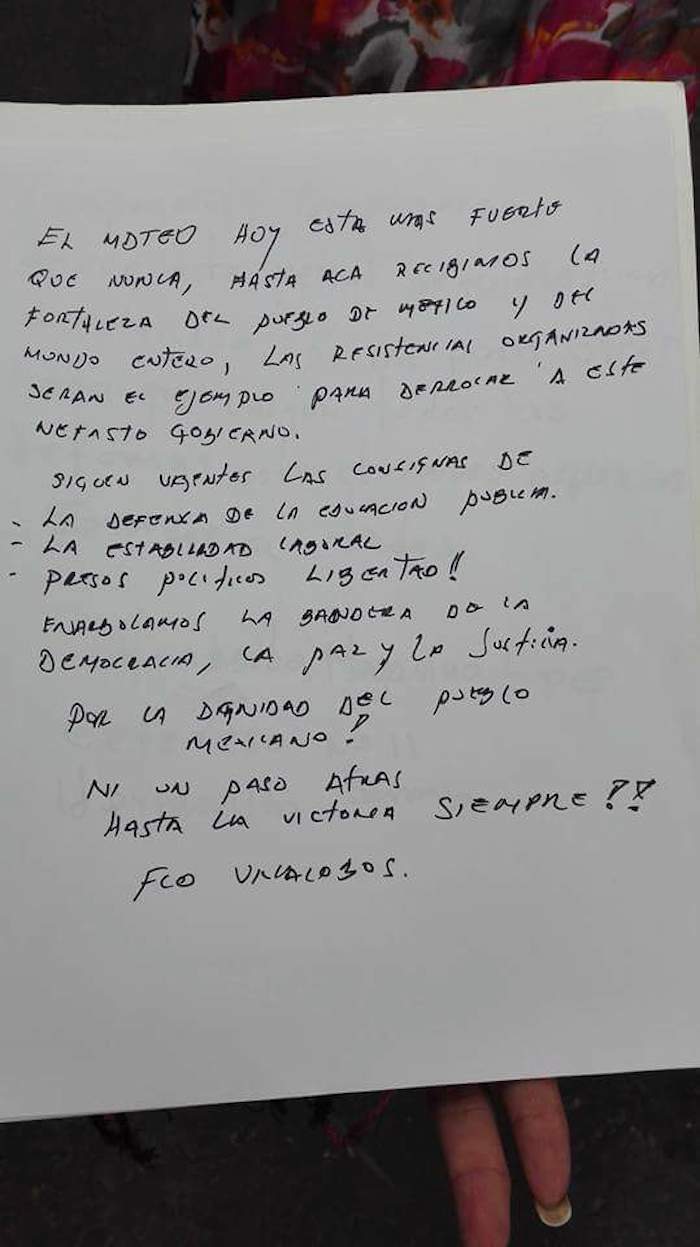 EL MDTEO HOY ESTA MAS FUERTE
QUE NUNCA, HASTA ACA RECIBIMOS LA
FORTALEZA DEL PUEBLO DE MEXICO Y DEL
MUNDO ENTERO, LAS RESISTENCIAS ORGANIZADAS
SERAN EL EJEMPLO PARA DERROCAR A ESTE
NEFASTO GOBIERNO.
SIGUEN URGENTES LAS CONSIGNAS DE
- LA DEFENSA DE LA EDUCACION PUBLICA.
- LA ESTABILIDAD LABORAL
- PRESOS POLITICOS LIBERTAD!!
ENARBOLAMOS LA BANDERA DE LA
DEMOCRACIA, LA PAZ Y LA JUSTICIA.
POR LA DIGNIDAD DEL PUEBLO
MEXICANO!
NI UN PASO ATRAS
HASTA LA VICTORIA SIEMPRE!!
FCO VILLALOBOS.